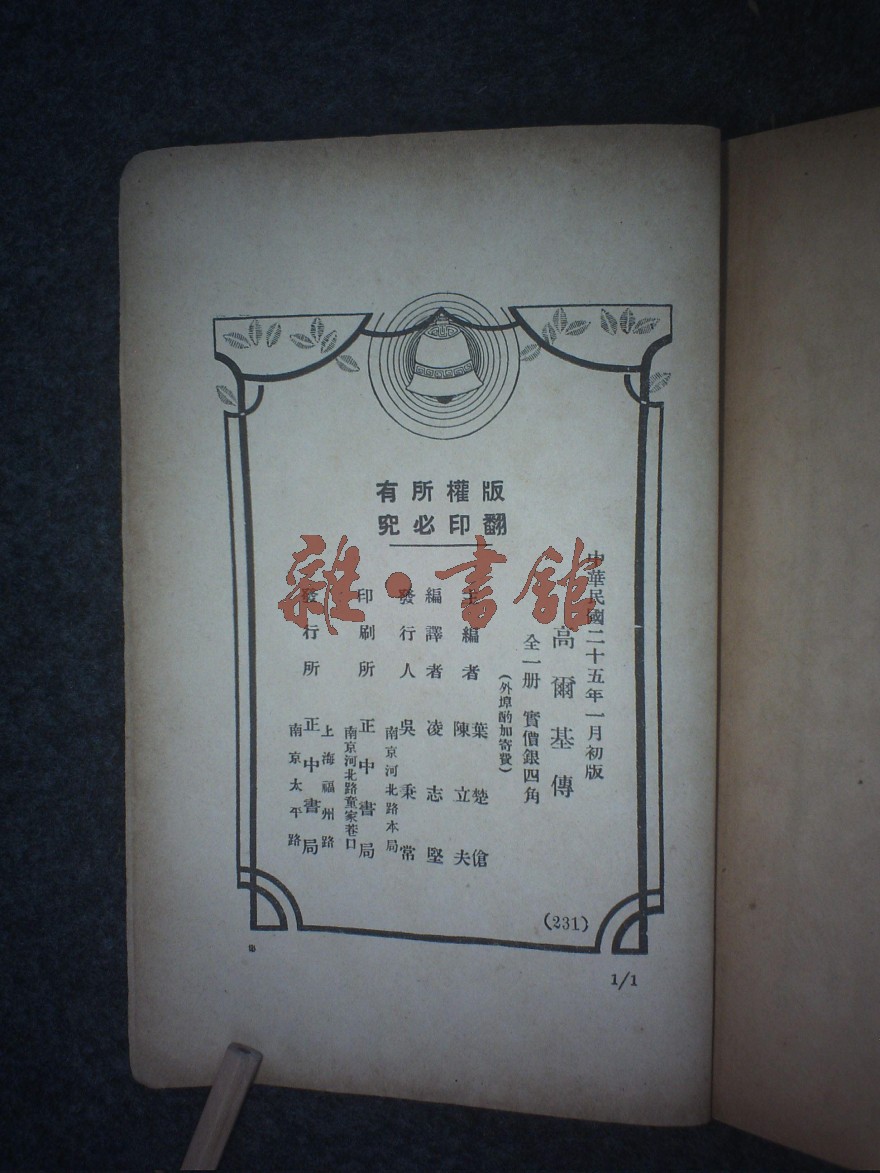 版權所有
翻印必究
中華民國二十五年一月初版
高爾基傳
全一册 實價銀四角
(外埠酌加寄費)
主編者 葉楚傖
陳立夫
編譯者 凌志堅
發行人 吳秉常
南京河北路本局
印刷所 正中書局
南京河北路童家巷口
發行所 正中書局
上海福州路
南京太平路
(231)
1/1
雜·書館